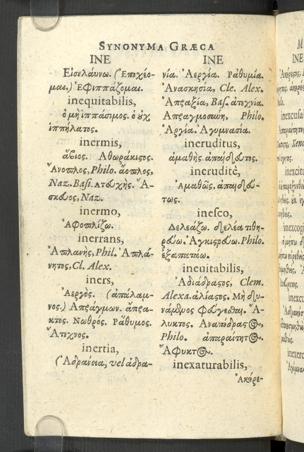 SYNONYMA GRÆCA
INE
Εἰσελαύνω. (Ἐπιχέο-
μαι.) Ἐφιππάζομαι.
inequitabilis,
ὁ μὴ ἱππάσιμος. ὁ οὐχ
ἱππήλατος.
inermis,
ἄοπλος. Αθωράκιστος.
Ἄνοπλος, Philo. ἄοπλος,
Naz. Bas. Ἀ-
σκευος, Naz.
inermo,
Αφοπλίζω.
inerrans,
Απλανὴς, Phil. Ἀπλά-
νητος, Cl. Alex.
iners,
Αεργὸς. (ἀπάλαμ-
νος.) Απράγμων. ἄπρα-
κτος. Νωθρὸς. Ράθυμος.
Ἄτεχνος.
inertia,
(Ἀδράνεια, vel ἀδρα-
INE
νία. Ἀεργία. Ραθυμία.
Ἀνασκησία, Cle. Alex.
Ἀπραξία, Bas. ἀτεχνία.
Απραγμοσύνη, Philo.
Ἀργία. Ἀγυμνασία.
ineruditus,
ἀμαθὴς. ἀπαίδευτος.
ineruditè,
Ἀμαθῶς. ἀπαιδεύ-
τως.
inesco,
Δελεάζω. δελέατι θη-
ρεύω. Ἀγκιστρεύω. Philo.
ἐξαπατῶ.
ineuitabilis,
Ἀδιάδραστος, Clem.
Alexa. ἀλίαστος. Μὴ δυ-
νάμενος φεύγεσθαι. Ἄ-
λυκτος. Αναπόδραστος.
Philo. ἀπαραίτητος.
Ἄφυκτος.
inexaturabilis,
Ἀκόρε-